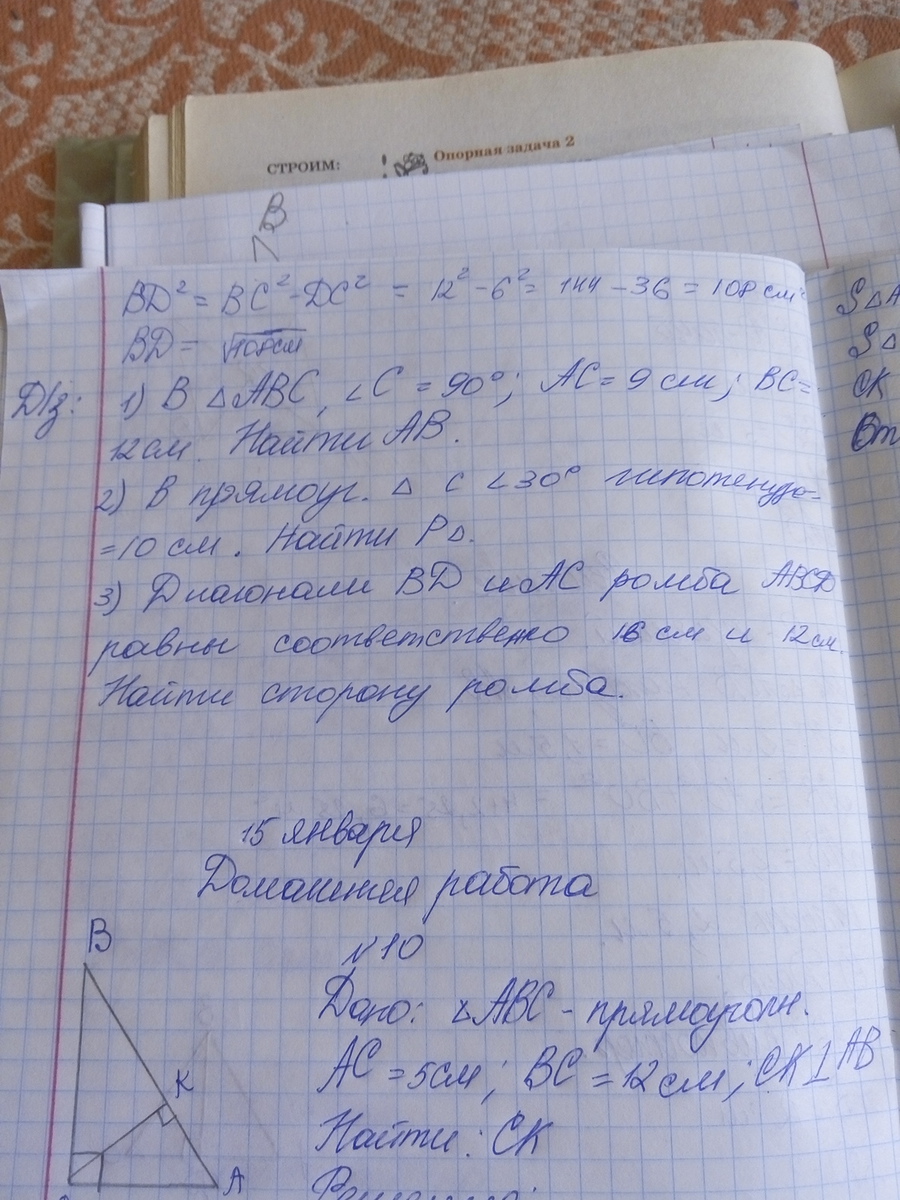 СТРОИМ:
! Опорная задача 2
В
BD² = BC² - DC² = 12² - 6² = 144 - 36 = 108 см²
BD = √108см
Д/з: 1) В △ABC, ∠C = 90°; AC = 9 см; BC =
12см. Найти AB.
2) В прямоуг. △ с ∠30° гипотенуза
=10 см. Найти P△.
3) Диагонали BD и AC ромба ABCD
равны соответственно 16 см и 12см.
Найти сторону ромба.
S△A
S△
CK
От
15 января
Домашняя работа
N10
Дано: △ABC - прямоуголн.
AC = 5см; BC = 12см; CK⊥AB
Найти: CK
Решение:
B
K
A